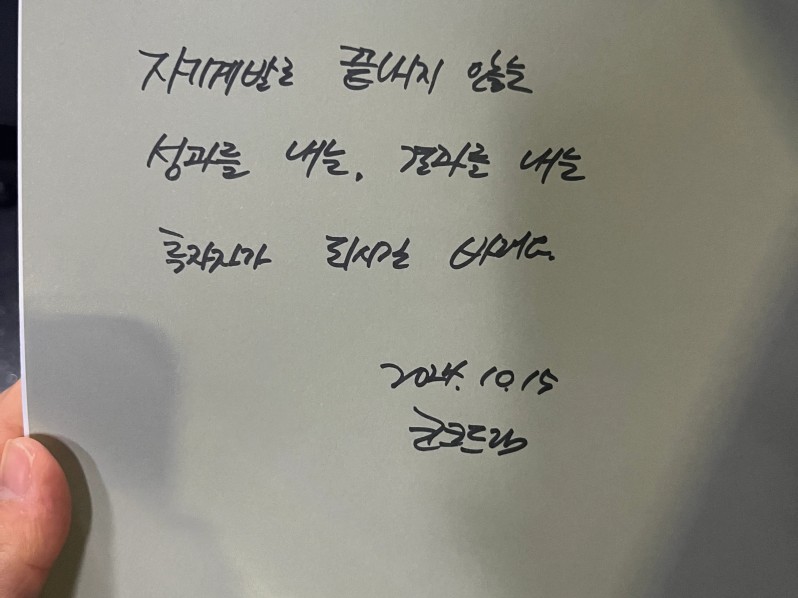 자기계발로 끝내지 않는
성과를 내는, 결과를 내는
투자자가 되시길 바래요.
2024. 10. 15